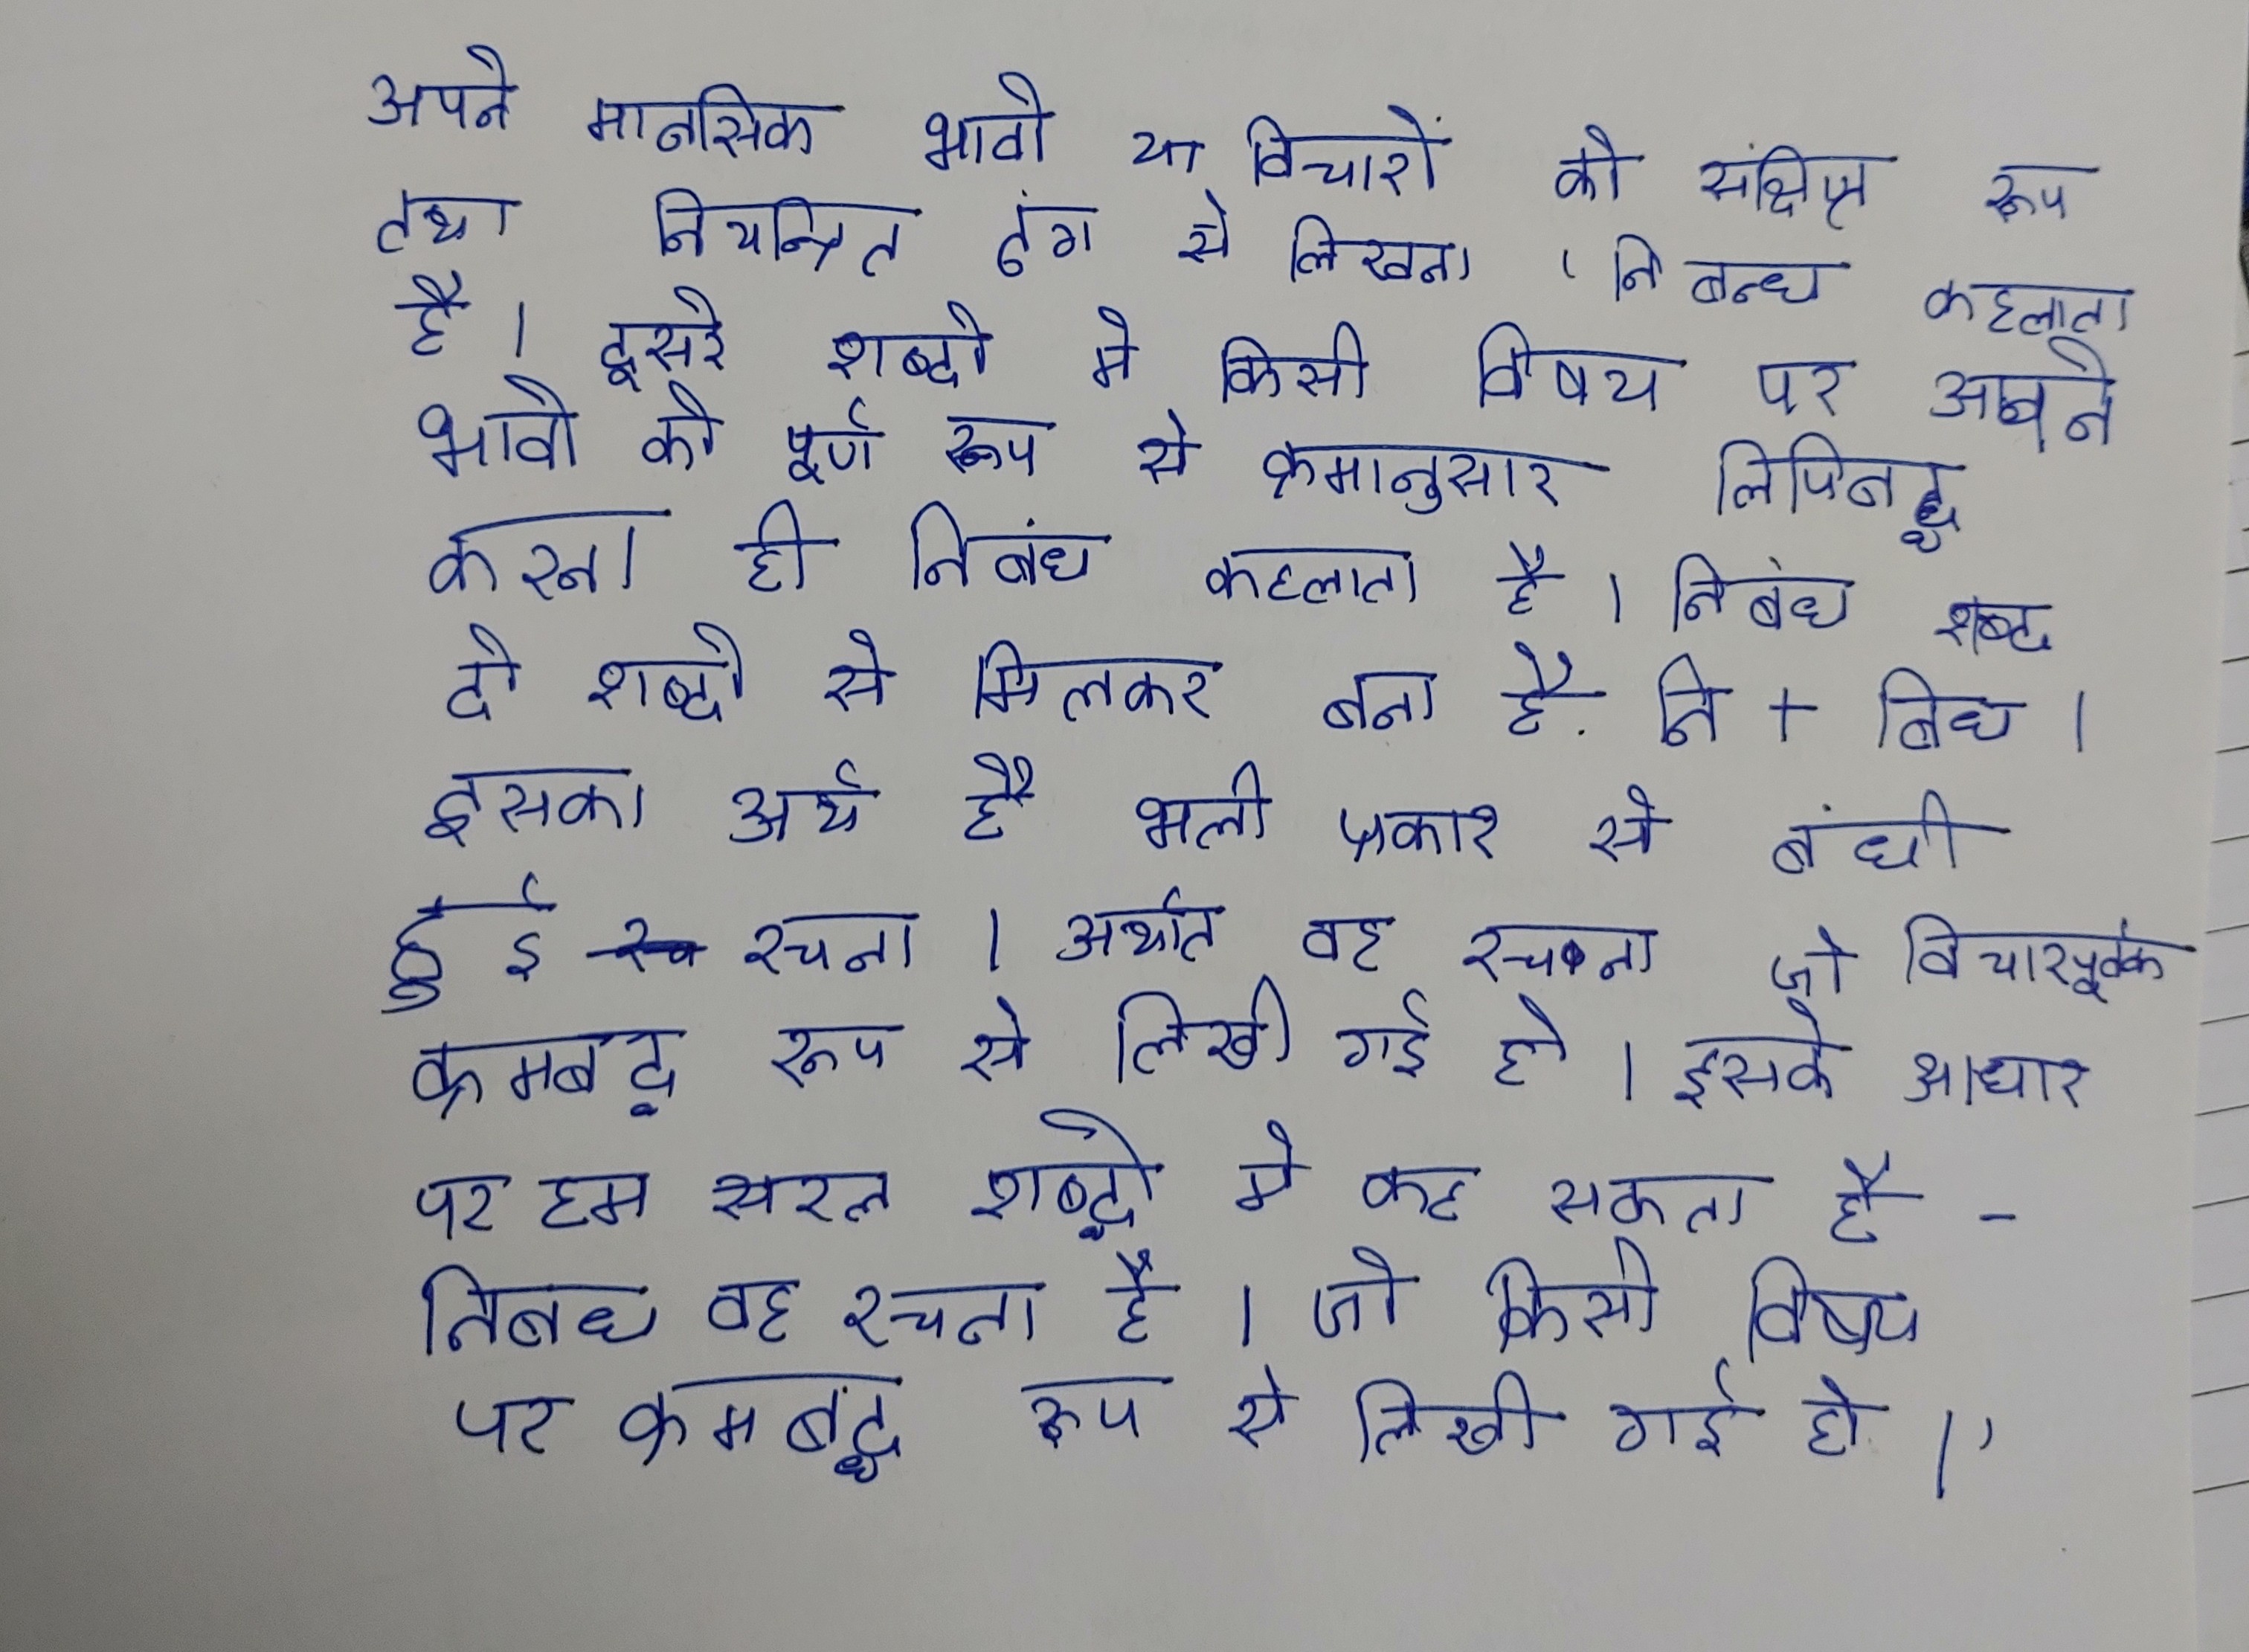 अपने मानसिक भावो या विचारों को संक्षिप्त रूप
तथा नियन्त्रित ढंग से लिखना 'निबन्ध कहलाता
है। दूसरे शब्दो मे किसी विषय पर अपने
भावो को पूर्ण रूप से क्रमानुसार लिपिबद्ध
करना ही निबंध कहलाता है। निबंध शब्द
दो शब्दो से मिलकर बना है. नि + बिध।
इसका अर्थ है भली प्रकार से बंधी
हुई रचना। अर्थात वह रचना जो विचारपूर्वक
क्रमबद्ध रूप से लिखी गई हो। इसके आधार
पर हम सरल शब्दो मे कह सकता है -
निबध वह रचना है। जो किसी विषय
पर क्रमबद्ध रूप से लिखी गई हो।'